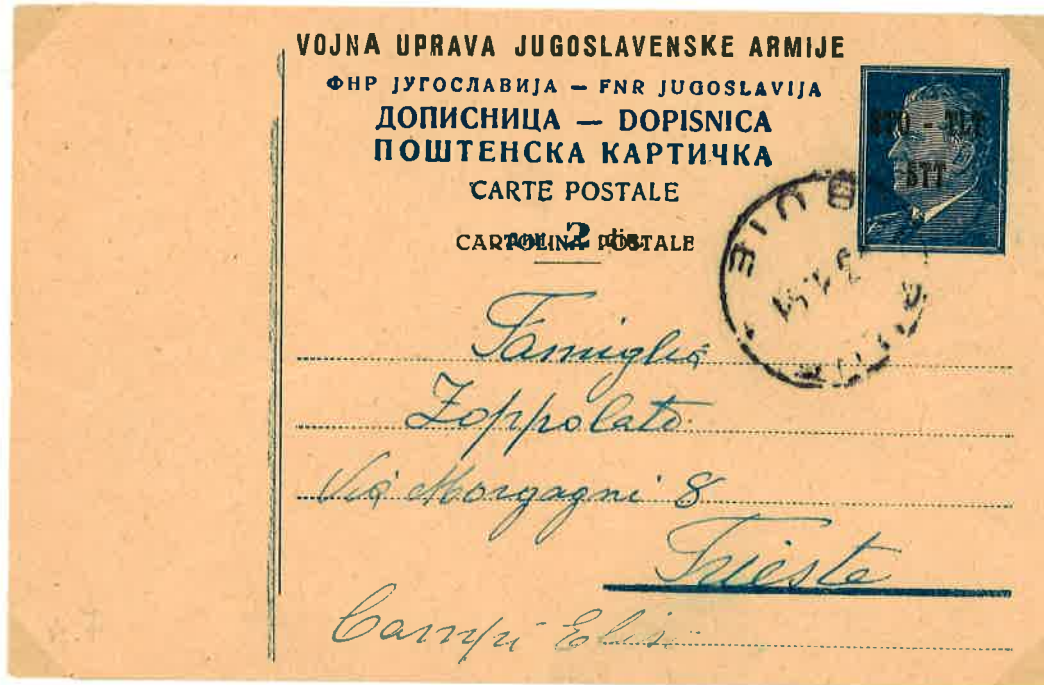 VOJNA UPRAVA JUGOSLAVENSKE ARMIJE
ФНР ЈУГОСЛАВИЈА — FNR JUGOSLAVIJA
ДОПИСНИЦА — DOPISNICA
ПОШТЕНСКА КАРТИЧКА
CARTE POSTALE
CARTOLINA POSTALE
2 din
STO - TLT
STT
BUIE
Famiglia
Zoppolato
Via Morgagni 8
Trieste
Campi Elisi